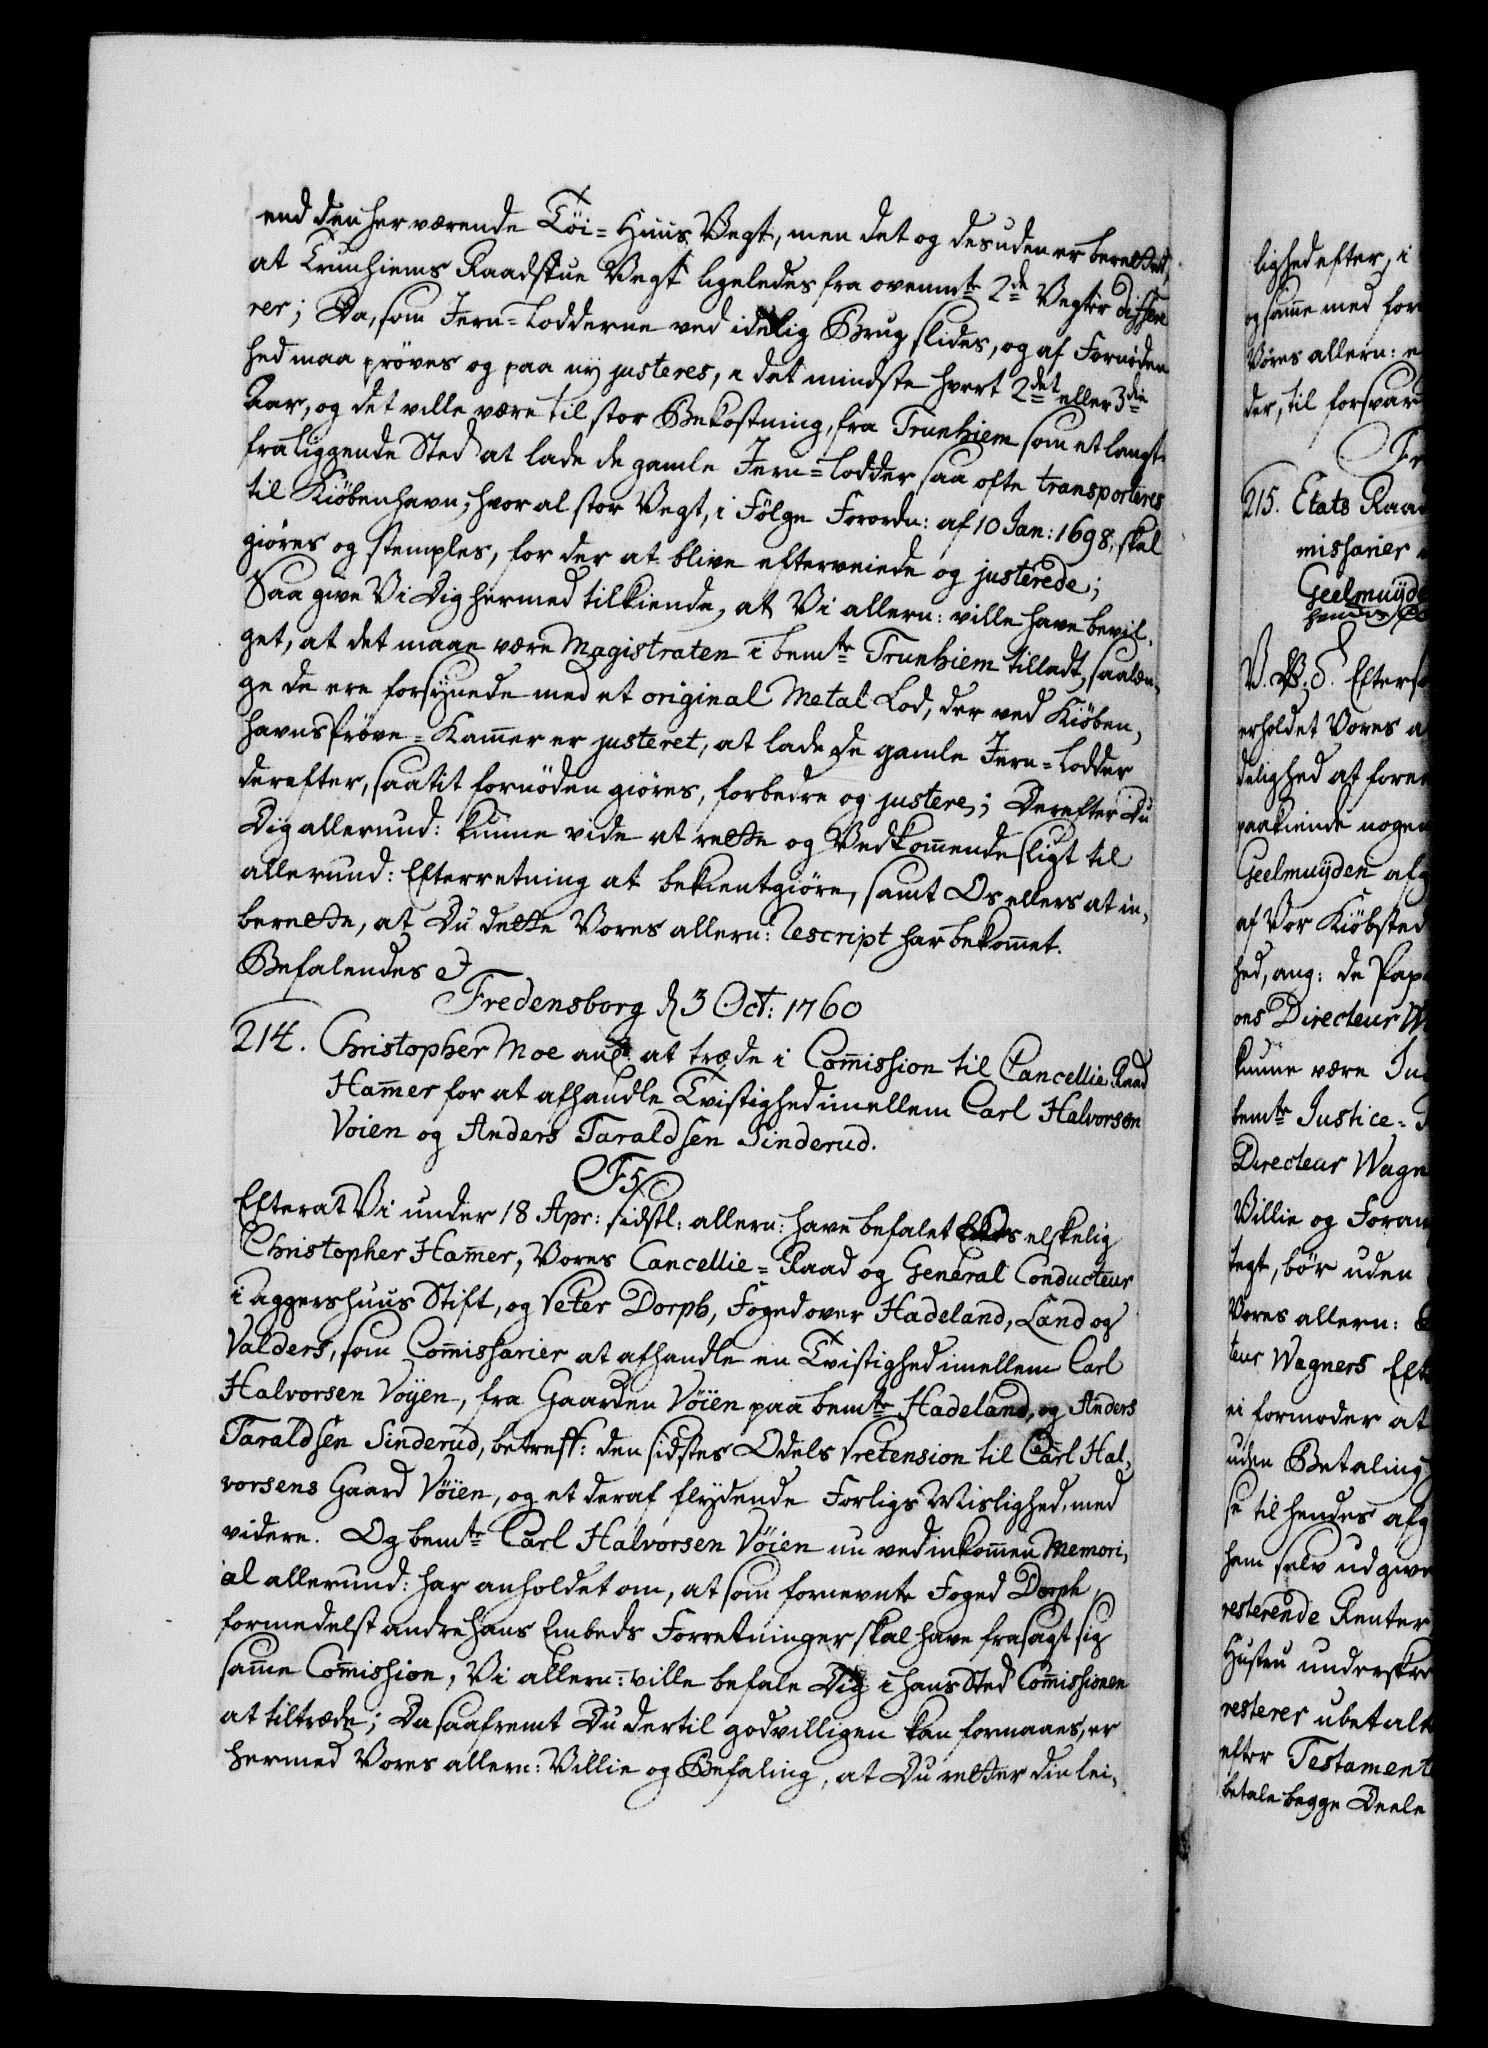 end den her værende Töi=Huus Vegt, men det og desuden er berettet,
at Trunhiems Raadstue Vegt ligeledes fra ovenmte 2de Vegter differe
rer; Da, som Jern=Lodderne ved idelig Brug slides, og af Fornöden
hed maa pröves og paa nÿ justeres, i det mindste hvert 2det eller 3die
Aar, og det ville være til stor Bekostning, fra Trunhiem som et langt
fraliggende Sted at lade de gamle Jern=Lodder saa ofte transporteres
til Kiöbenhavn, hvor al stor Vegt, i Fölge Forordn: af 10 Jan: 1698, skal
giöres og stemples, for der at blive efterveiede og justerede;
Saa give Vi Dig hermed tilkiende, at Vi allern: ville have bevil,
get, at det maae være Magistraten i bemte Trunhiem tilladt, saalæn,
ge de ere forsÿnede med et original Metal Lod, der ved Kiöben,
havns Pröve=Kammer er justeret, at lade de gamle Jern=Lodder
derefter, saa tit fornöden giöres, forbedre og justere; Derefter Du
Dig allerund: kunne vide at rette og Vedkommende sligt til
allerund: Efterretning at bekientgiöre, samt Os ellers at in,
berette, at Du dette Vores allern: Rescript har bekommet.
Befalendes
Fredensborg d 3 Oct: 1760
214. Christopher Moe ang: at træde i Commission til Cancellie Raad
Hammer for at afhandle Tvistighed imellem Carl Halvorsen
Voien og Anders Taraldsen Sinderud.
F5
Efterat Vi under 18 Apr: sidstl: allern: have befalet Os elskelig
Christopher Hammer, Vores Cancellie=Raad og General Conducteur
i Aggershuus Stift, og Peter Dorph, Foged over Hadeland, Land og
Valders, som Commissarier at afhandle en Tvistighed imellem Carl
Halvorsen Voÿen, fra Gaarden Vöien paa bemte Hadeland, og Anders
Taraldsen Sinderud, betreff: den sidstes Odels Prætension til Carl Hal,
vorsens Gaard Vöien, og et deraf flÿdende Forligs Mislighed, med
videre. Og bemte Carl Halvorsen Vöien nu ved inkommen Memori,
al allerund: har anholdet om, at som fornevnte Foged Dorph
formedelst andre hans Embeds Forretninger skal have frasagt sig
samme Commission, Vi allern: ville befale Dig i hans Sted Commissionen
at tiltræde; Da saafremt Du dertil godvilligen kan formaaes, er
hermed Vores allern: Villie og Befaling, at Du retter din lei,
lighed efter, i
og samme med for
Vores allern: e
der, til forsvar
Fr
215. Etats Raad
missarier
Geelmuÿde
V. V. S. Eftersom
erholdet Vores a
delighed at fore
paakiende nogen
Geelmuÿden afg
af Vor Kiöbsted
hed, ang: de Pap
ons Directeur W
kunne være In
bemte Justice=
Directeur Wagn
Villie og Foran
tegt, bör uden
Vores allern:
teur Wagners Eft
ei formoder at
uden Betaling
se til hendes afg
ham selv udgive
resterende Renter
Hustru underskre
resterer ubetalt
efter Testament
betale begge Deele